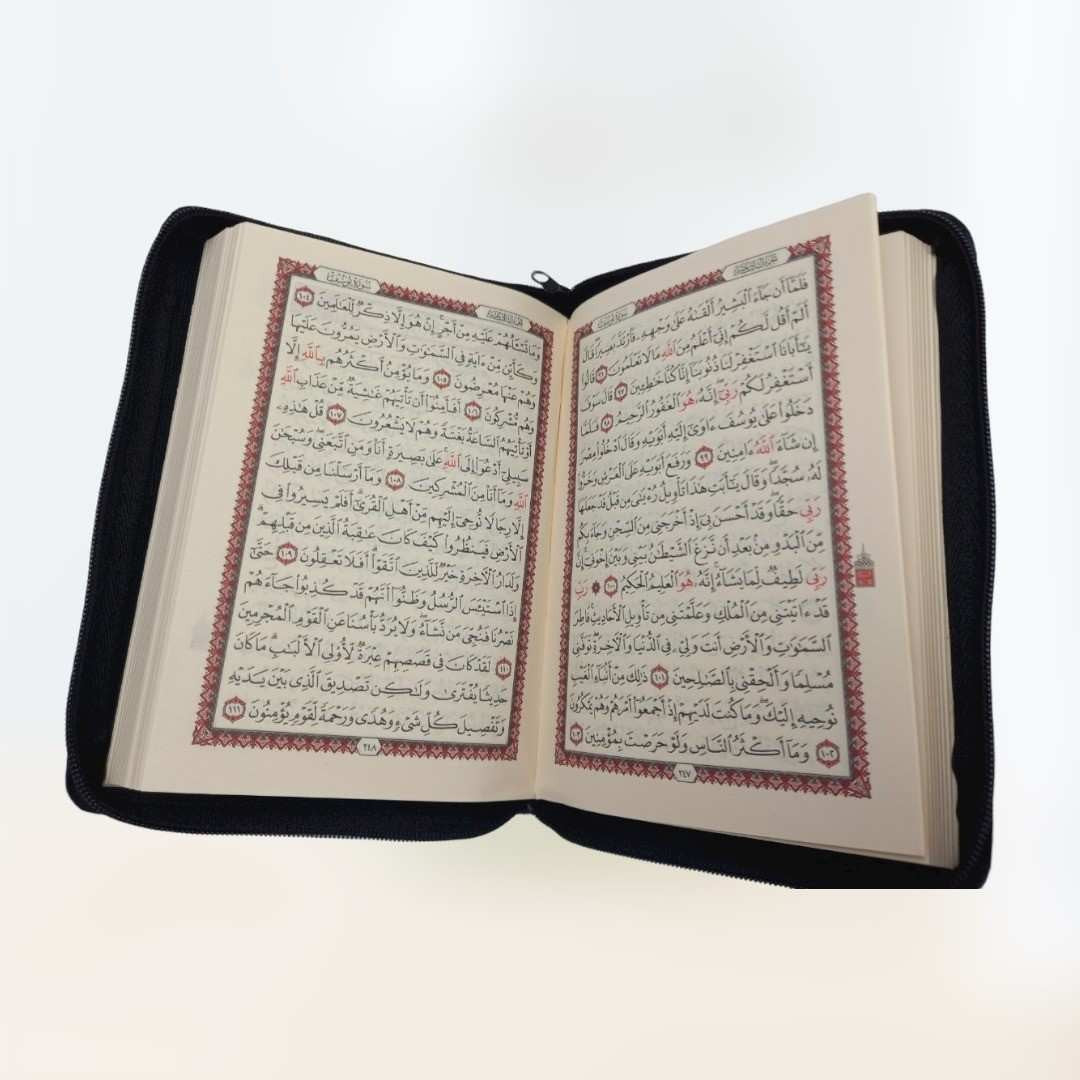 سُورَةُ يُوسُفَ الجُزْءُ الثَّالِثَ عَشَرَ
فَلَمَّآ أَن جَآءَ ٱلْبَشِيرُ أَلْقَىٰهُ عَلَىٰ وَجْهِهِۦ فَٱرْتَدَّ بَصِيرًا ۖ قَالَ
أَلَمْ أَقُل لَّكُمْ إِنِّىٓ أَعْلَمُ مِنَ ٱللَّهِ مَا لَا تَعْلَمُونَ ٩٦ قَالُوا۟
يَٰٓأَبَانَا ٱسْتَغْفِرْ لَنَا ذُنُوبَنَآ إِنَّا كُنَّا خَٰطِـِٔينَ ٩٧ قَالَ سَوْفَ
أَسْتَغْفِرُ لَكُمْ رَبِّىٓ ۖ إِنَّهُۥ هُوَ ٱلْغَفُورُ ٱلرَّحِيمُ ٩٨ فَلَمَّا
دَخَلُوا۟ عَلَىٰ يُوسُفَ ءَاوَىٰٓ إِلَيْهِ أَبَوَيْهِ وَقَالَ ٱدْخُلُوا۟ مِصْرَ
إِن شَآءَ ٱللَّهُ ءَامِنِينَ ٩٩ وَرَفَعَ أَبَوَيْهِ عَلَى ٱلْعَرْشِ وَخَرُّوا۟
لَهُۥ سُجَّدًا ۖ وَقَالَ يَٰٓأَبَتِ هَٰذَا تَأْوِيلُ رُءْيَٰىَ مِن قَبْلُ قَدْ جَعَلَهَا
رَبِّى حَقًّا ۖ وَقَدْ أَحْسَنَ بِىٓ إِذْ أَخْرَجَنِى مِنَ ٱلسِّجْنِ وَجَآءَ بِكُم
مِّنَ ٱلْبَدْوِ مِنۢ بَعْدِ أَن نَّزَغَ ٱلشَّيْطَٰنُ بَيْنِى وَبَيْنَ إِخْوَتِىٓ ۚ إِنَّ
رَبِّى لَطِيفٌ لِّمَا يَشَآءُ ۚ إِنَّهُۥ هُوَ ٱلْعَلِيمُ ٱلْحَكِيمُ ١٠٠ ۞ رَبِّ
قَدْ ءَاتَيْتَنِى مِنَ ٱلْمُلْكِ وَعَلَّمْتَنِى مِن تَأْوِيلِ ٱلْأَحَادِيثِ ۚ فَاطِرَ
ٱلسَّمَٰوَٰتِ وَٱلْأَرْضِ أَنتَ وَلِىِّۦ فِى ٱلدُّنْيَا وَٱلْءَاخِرَةِ ۖ تَوَفَّنِى
مُسْلِمًا وَأَلْحِقْنِى بِٱلصَّٰلِحِينَ ١٠١ ذَٰلِكَ مِنْ أَنۢبَآءِ ٱلْغَيْبِ
نُوحِيهِ إِلَيْكَ ۖ وَمَا كُنتَ لَدَيْهِمْ إِذْ أَجْمَعُوٓا۟ أَمْرَهُمْ وَهُمْ يَمْكُرُونَ
١٠٢ وَمَآ أَكْثَرُ ٱلنَّاسِ وَلَوْ حَرَصْتَ بِمُؤْمِنِينَ ١٠٣
٢٤٧
سُورَةُ يُوسُفَ الجُزْءُ الثَّالِثَ عَشَرَ
وَمَا تَسْـَٔلُهُمْ عَلَيْهِ مِنْ أَجْرٍ ۚ إِنْ هُوَ إِلَّا ذِكْرٌ لِّلْعَٰلَمِينَ ١٠٤
وَكَأَيِّن مِّنْ ءَايَةٍ فِى ٱلسَّمَٰوَٰتِ وَٱلْأَرْضِ يَمُرُّونَ عَلَيْهَا
وَهُمْ عَنْهَا مُعْرِضُونَ ١٠٥ وَمَا يُؤْمِنُ أَكْثَرُهُم بِٱللَّهِ إِلَّا
وَهُم مُّشْرِكُونَ ١٠٦ أَفَأَمِنُوٓا۟ أَن تَأْتِيَهُمْ غَٰشِيَةٌ مِّنْ عَذَابِ ٱللَّهِ
أَوْ تَأْتِيَهُمُ ٱلسَّاعَةُ بَغْتَةً وَهُمْ لَا يَشْعُرُونَ ١٠٧ قُلْ هَٰذِهِۦ
سَبِيلِىٓ أَدْعُوٓا۟ إِلَى ٱللَّهِ ۚ عَلَىٰ بَصِيرَةٍ أَنَا۠ وَمَنِ ٱتَّبَعَنِى ۖ وَسُبْحَٰنَ
ٱللَّهِ وَمَآ أَنَا۠ مِنَ ٱلْمُشْرِكِينَ ١٠٨ وَمَآ أَرْسَلْنَا مِن قَبْلِكَ
إِلَّا رِجَالًا نُّوحِىٓ إِلَيْهِم مِّنْ أَهْلِ ٱلْقُرَىٰٓ ۗ أَفَلَمْ يَسِيرُوا۟ فِى
ٱلْأَرْضِ فَيَنظُرُوا۟ كَيْفَ كَانَ عَٰقِبَةُ ٱلَّذِينَ مِن قَبْلِهِمْ ۗ
وَلَدَارُ ٱلْءَاخِرَةِ خَيْرٌ لِّلَّذِينَ ٱتَّقَوْا۟ ۗ أَفَلَا تَعْقِلُونَ ١٠٩ حَتَّىٰٓ
إِذَا ٱسْتَيْـَٔسَ ٱلرُّسُلُ وَظَنُّوٓا۟ أَنَّهُمْ قَدْ كُذِبُوا۟ جَآءَهُمْ
نَصْرُنَا فَنُجِّىَ مَن نَّشَآءُ ۖ وَلَا يُرَدُّ بَأْسُنَا عَنِ ٱلْقَوْمِ ٱلْمُجْرِمِينَ
١١٠ لَقَدْ كَانَ فِى قَصَصِهِمْ عِبْرَةٌ لِّأُو۟لِى ٱلْأَلْبَٰبِ ۗ مَا كَانَ
حَدِيثًا يُفْتَرَىٰ وَلَٰكِن تَصْدِيقَ ٱلَّذِى بَيْنَ يَدَيْهِ
وَتَفْصِيلَ كُلِّ شَىْءٍ وَهُدًى وَرَحْمَةً لِّقَوْمٍ يُؤْمِنُونَ ١١١
٢٤٨